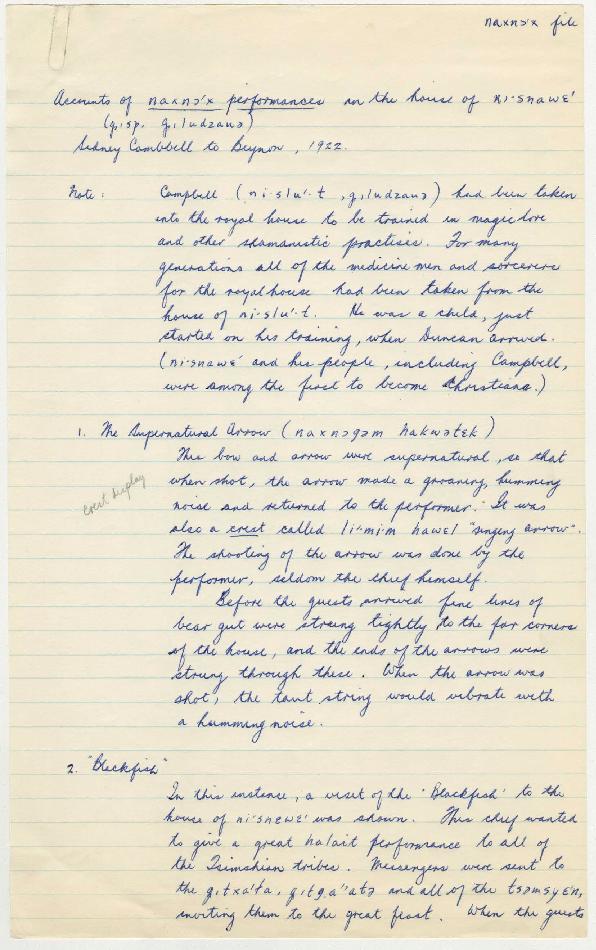 naxnɔ'x file
Accounts of naxnɔ'x performances in the house of ni·snawɛ'
(g̣ısp. g̣ıludzauɔ)
Sidney Cambbell to Beynon, 1922.
Note: Campbell (ni·slu'·t, g̣ıludzauɔ) had been taken
into the royal house to be trained in magic lore
and other shamanistic practises. For many
generations all of the medicine men and sorcerers
for the royal house had been taken from the
house of ni·slu'·t. He was a child, just
started on his training, when Duncan arrived.
(ni·snawɛ' and his people, including Campbell,
were among the first to become Christians.)
1. The Supernatural Arrow (naxnɔgəm hakwətɛk)
This bow and arrow were supernatural, so that
when shot, the arrow made a groaning, humming
crest display
noise and returned to the performer. It was
also a crest called li·mi·m hawɛl "singing arrow".
The shooting of the arrow was done by the
performer, seldom the chief himself.
Before the guests arrived fine lines of
bear gut were strung tightly to the far corners
of the house, and the ends of the arrows were
strung through these. When the arrow was
shot, the taut string would vibrate with
a humming noise.
2. "Blackfish"
In this instance, a visit of the 'Blackfish' to the
house of ni·snɛwɛ' was shown. This chief wanted
to give a great halait performance to all of
the Tsimshian tribes. Messengers were sent to
the g̣ıtxa'ła, g̣ıtg̣a''atə and all of the tsəmsyɛn,
inviting them to the great feast. When the guests